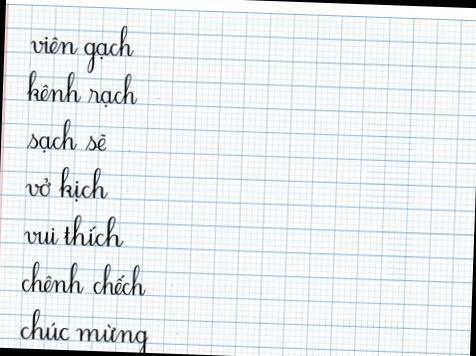 viên gạch
kênh rạch
sạch sẽ
vở kịch
vui thích
chênh chếch
chúc mừng